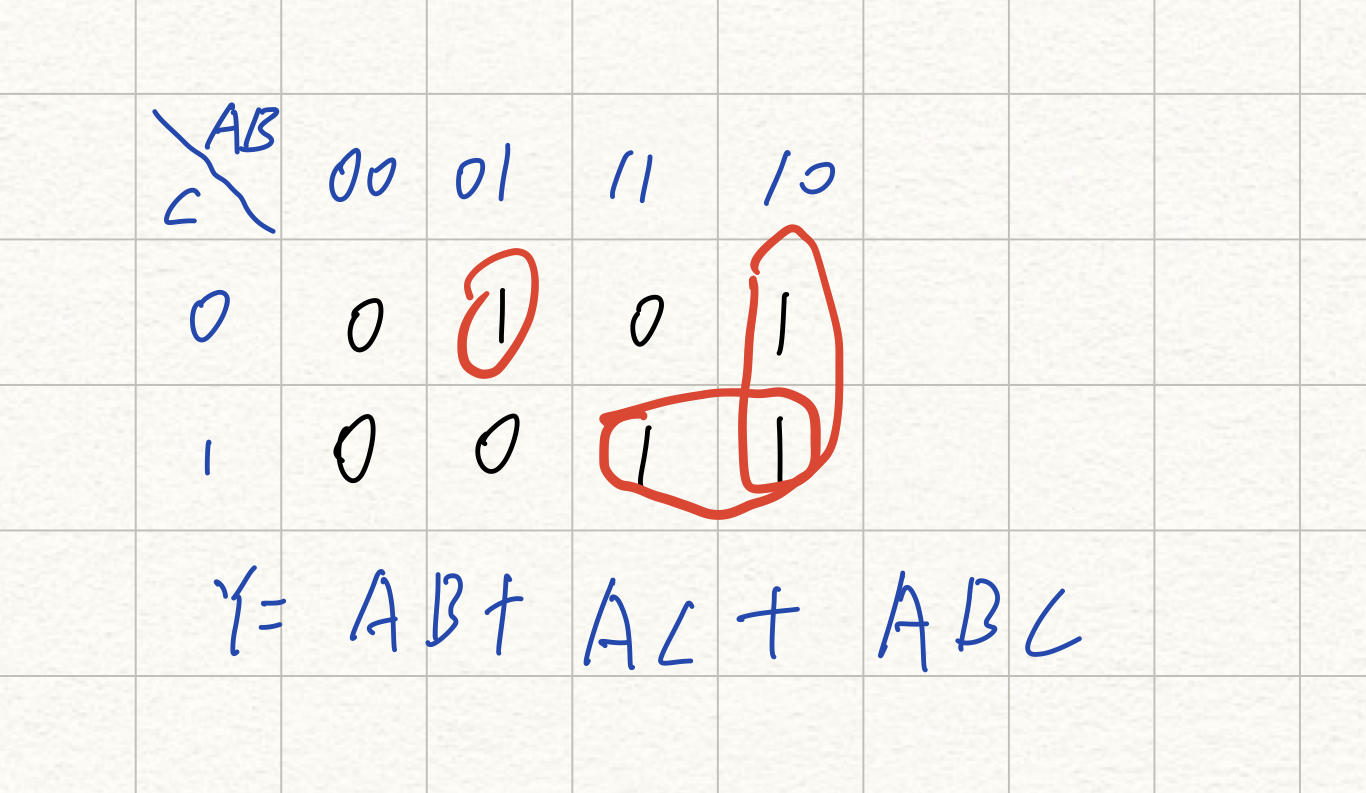 AB
C 00 01 11 10
0 0 1 0 1
1 0 0 1 1
Y= AB+ AC + ABC